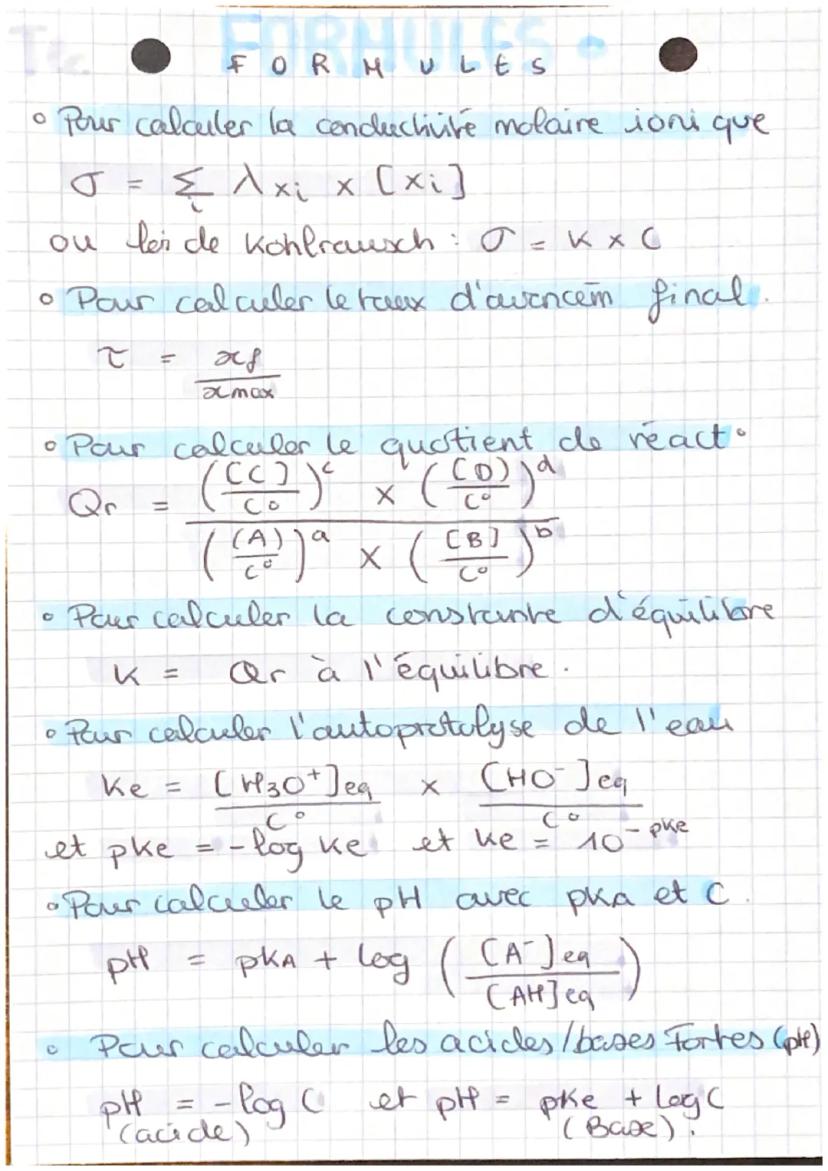 FORMULES
° Pour calculer la conductivité molaire ionique
σ = Σi λxi × [xi]
ou loi de Kohlrausch : σ = K × C
° Pour calculer le taux d'avancem final.
τ = xf / xmax
° Pour calculer le quotient de réact°
Qr = (([C]/C°)^c × ([D)/C°)^d) / (((A)/C°)^a × ([B]/C°)^b)
° Pour calculer la constante d'équilibre
K = Qr à l'équilibre.
° Pour calculer l'autoprotolyse de l'eau
Ke = [H3O+]eq / C° × [HO-]eq / C°
et pke = -log ke et ke = 10^-pke
° Pour calculer le pH avec pKa et C.
pH = pKA + log ([A-]eq / [AH]eq)
° Pour calculer les acides/bases Fortes (pH)
pH = -log C et pH = pKe + log C
(acide) (Base).